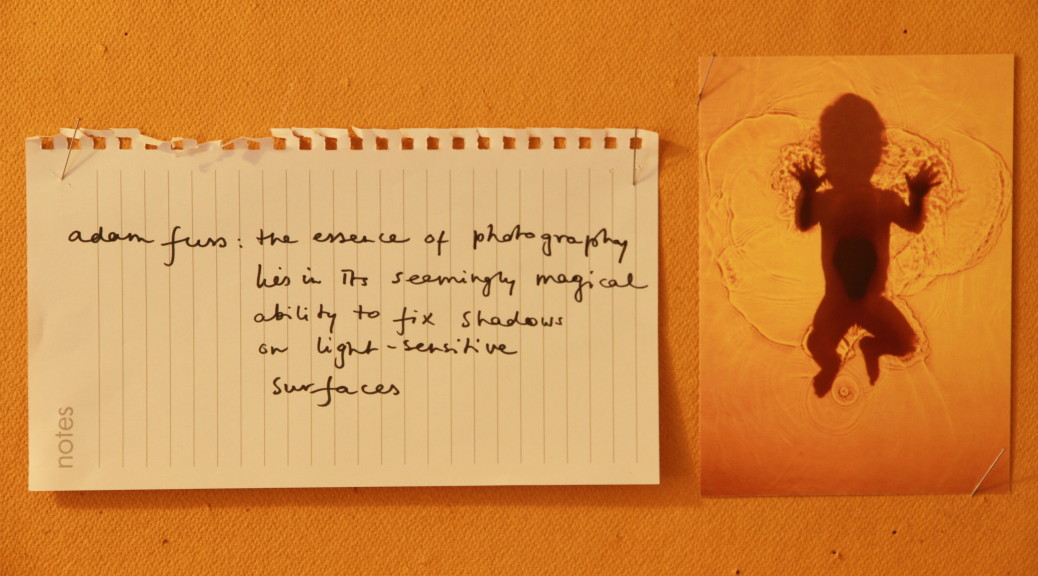 adam fuss: the essence of photography
lies in its seemingly magical
ability to fix shadows
on light-sensitive
surfaces
notes